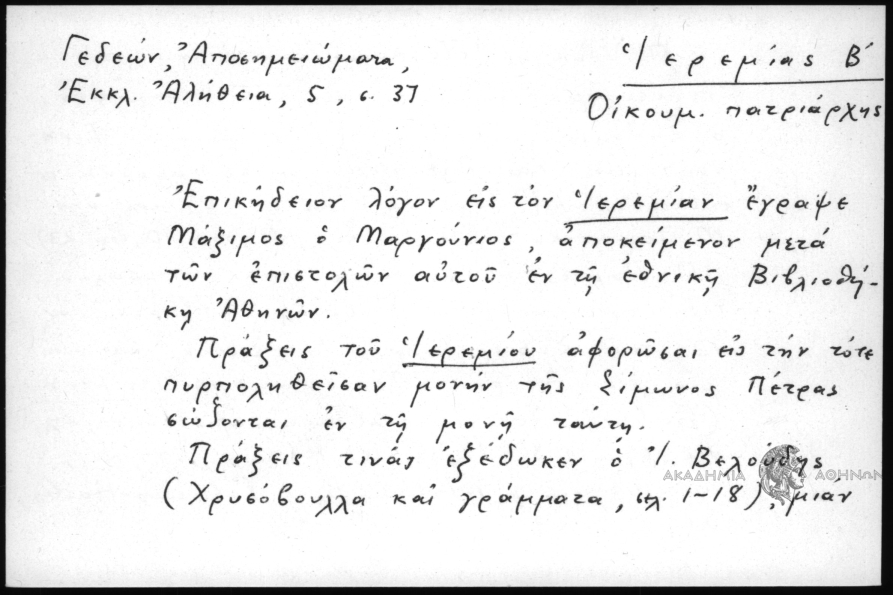 Γεδεών, Ἀποσημειώματα,
Ἐκκλ. Ἀλήθεια, 5, σ. 37
Ἱερεμίας Β΄
Οἰκουμ. πατριάρχης
Ἐπικήδειον λόγον εἰς τὸν Ἱερεμίαν ἔγραψε
Μάξιμος ὁ Μαργούνιος, ἀποκείμενον μετὰ
τῶν ἐπιστολῶν αὐτοῦ ἐν τῇ ἐθνικῇ Βιβλιοθή-
κῃ Ἀθηνῶν.
Πράξεις τοῦ Ἱερεμίου ἀφορῶσαι εἰς τὴν τότε
πυρποληθεῖσαν μονὴν τῆς Σίμωνος Πέτρας
σώζονται ἐν τῇ μονῇ ταύτῃ.
Πράξεις τινὰς ἐξέδωκεν ὁ Ἰ. Βελούδης
(Χρυσόβουλλα καὶ γράμματα, σελ. 1-18), μίαν
ΑΚΑΔΗΜΙΑ ΑΘΗΝΩΝ